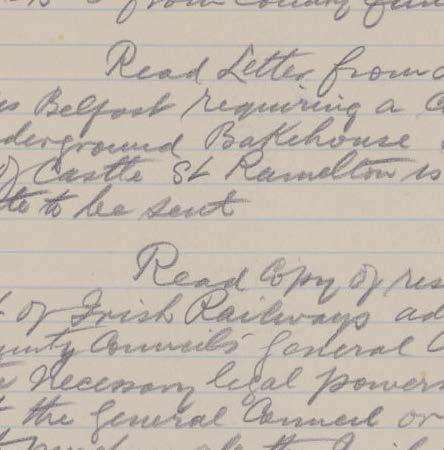 from County
Read Letter from
Belfast requiring a
derground Bakehouse
of Castle St Ramelton is
te to be sent
Read Copy of res
of Irish Railways ad
unty Councils' General C
necessary legal powers
the General Council or